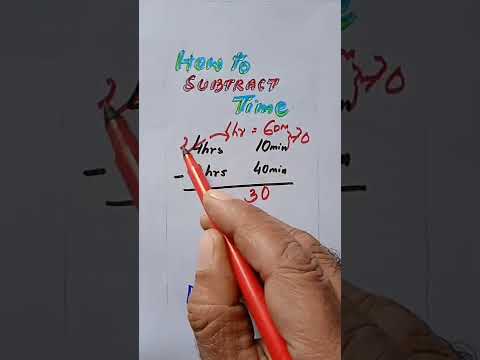 How to
SUBTRACT
Time
1hr = 60m 70
4hrs 10min
- hrs 40min
30